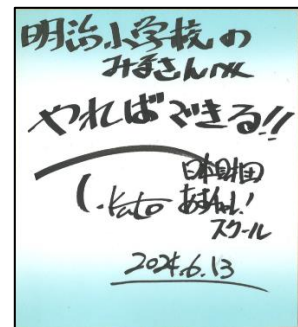 明治小学校の
みなさんへ
やればできる!!
I.Kato
日本財団
あすチャレ!
スクール
2024.6.13